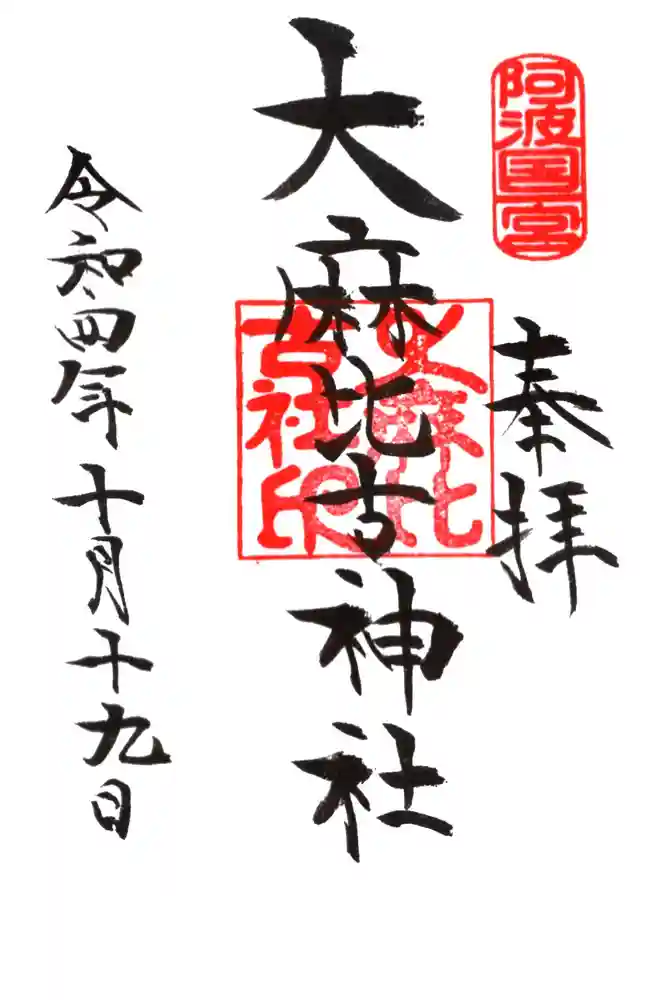 阿波国一宮
奉拝
大麻比古神社
大麻比
古神社印
令和四年十月十九日